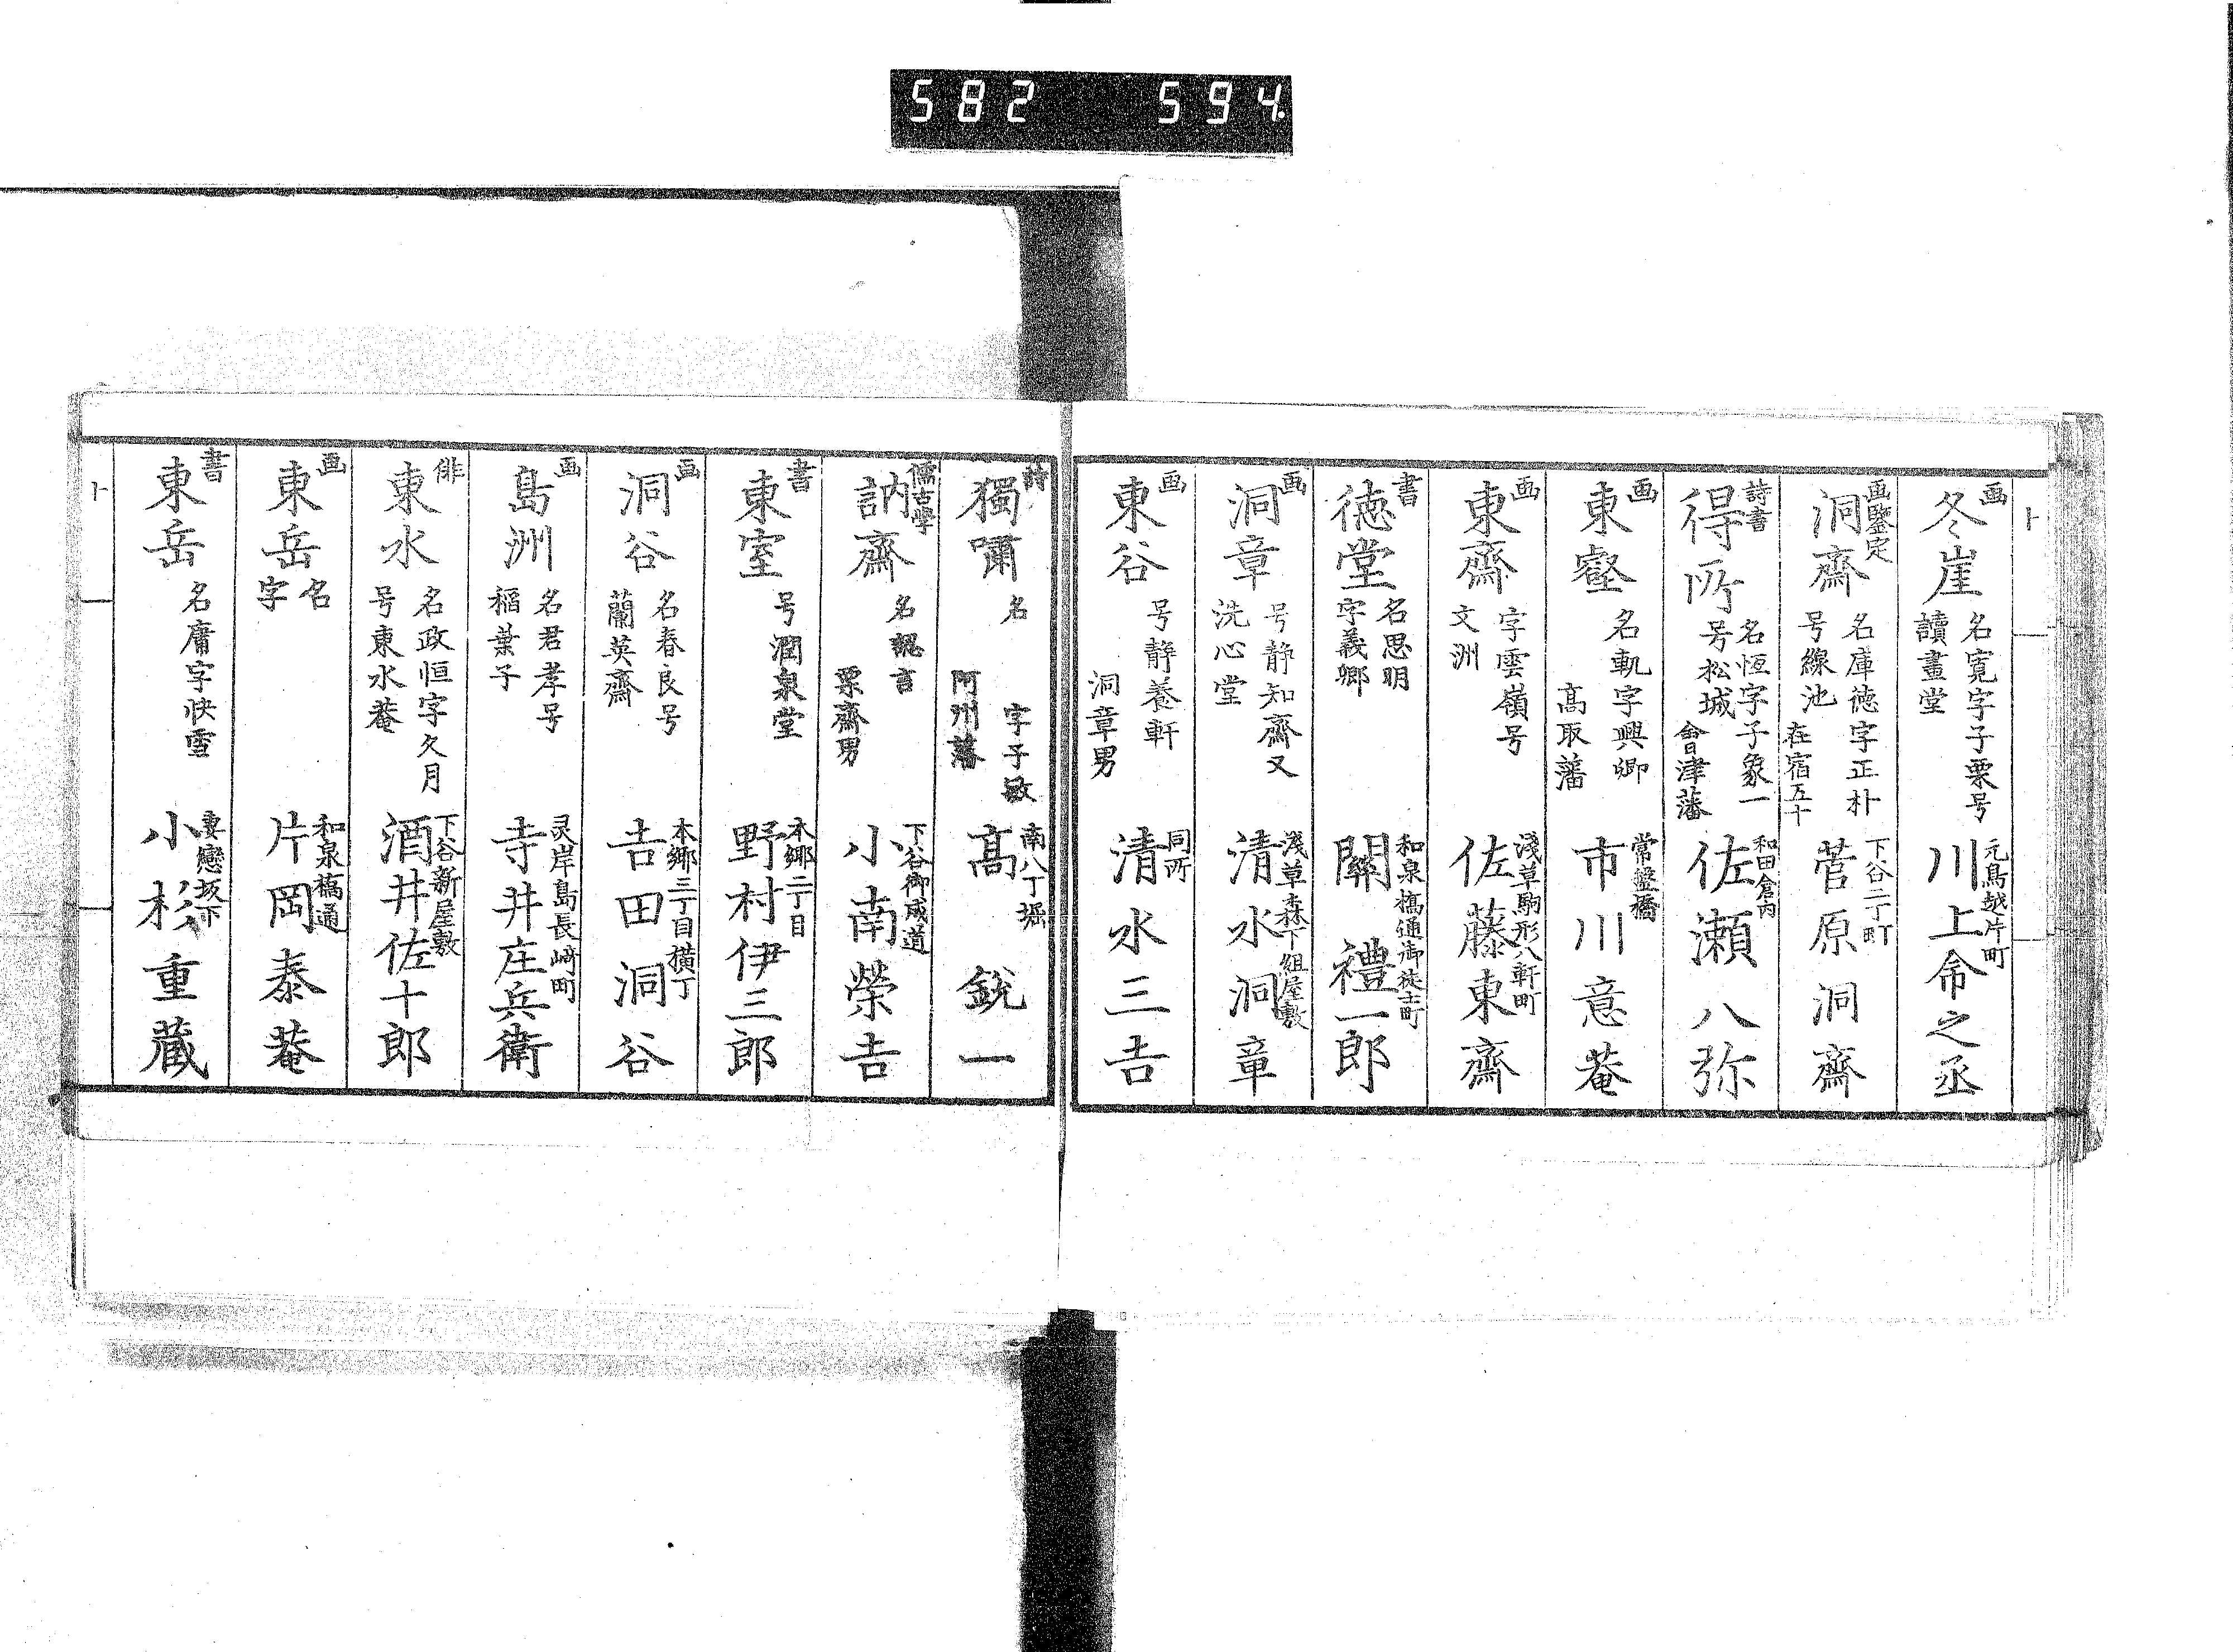 582 594
ト
画
冬崖
名寛字子栗号
讀畫堂
元鳥越片町
川上命之丞
画鑒定
洞齋
名庫徳字正朴
号線池
在宿五十
下谷二丁町
菅原洞齋
詩書
得所
名恆字子象一
号松城
會津藩
和田倉内
佐瀬八弥
画
東壑
名軏字興卿
髙取藩
常盤橋
市川意菴
画
東齋
字雲嶺号
文洲
淺草駒形八軒町
佐藤東齋
書
徳堂
名思明
字義卿
和泉橋通御徒士町
關禮一郎
画
洞章
号静知齋又
洗心堂
淺草森下組屋敷
清水洞章
画
東谷
号静養軒
洞章男
同所
清水三吉
詩
獨嘯
名 字子敏
阿州藩
南八丁堀
髙銳一
儒古學
訥齋
名 言
栗齋男
下谷御成道
小南榮吉
書
東室
号潤泉堂
本郷二丁目
野村伊三郎
画
洞谷
名春良号
蘭英齋
本郷三丁目横丁
吉田洞谷
画
島洲
名君孝号
稲葉子
灵岸島長﨑町
寺井庄兵衛
俳
東水
名政恒字久月
号東水菴
下谷新屋敷
酒井佐十郎
画
東岳
名
字
和泉橋通
片岡泰菴
書
東岳
名庸字快雪
妻戀坂下
小杉重蔵
ト